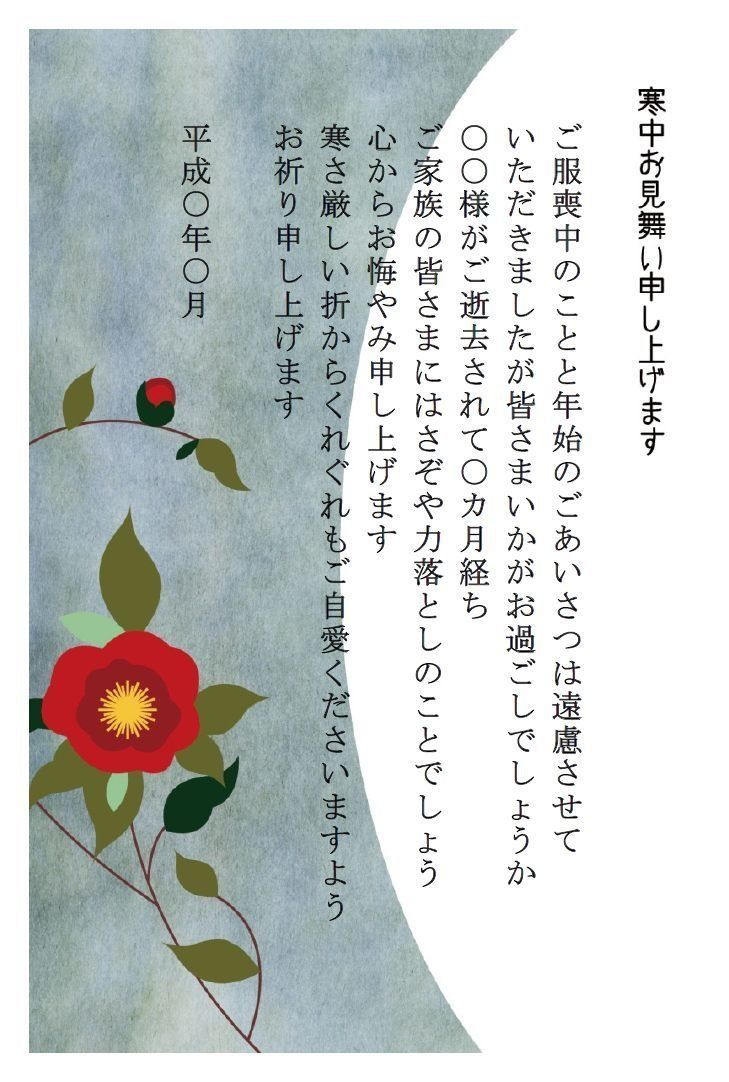 寒中お見舞い申し上げます
ご服喪中のことと年始のごあいさつは遠慮させて
いただきましたが皆さまいかがお過ごしでしょうか
〇〇様がご逝去されて〇カ月経ち
ご家族の皆さまにはさぞや力落としのことでしょう
心からお悔やみ申し上げます
寒さ厳しい折からくれぐれもご自愛くださいますよう
お祈り申し上げます
平成〇年〇月